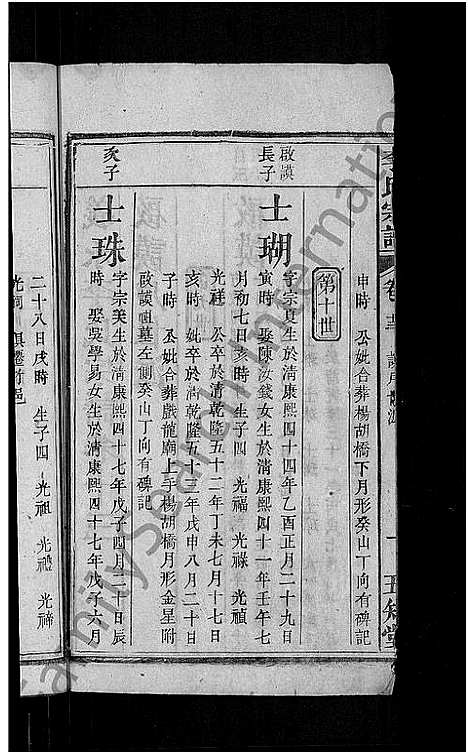 李氏宗譜
卷十三
申時 公妣合葬楊胡橋下月形癸山丁向有碑記
第十世
啟謨
長子
士瑚
字宗貞生於清康熙四十四年乙酉正月二十九日
寅時 娶陳汝錢女生於清康熙四十一年壬午七
月初七日亥時 生子四 光福 光祿 光禎
光祥 公卒於清乾隆五十二年丁未七月十七日
亥時 妣卒於清乾隆五十三年戊申八月二十日
子時 公妣合葬戲龍廟上手楊胡橋月形金星附
啟謨祖墓左側癸山丁向有碑記
次子
士珠
字宗美生於清康熙四十七年戊子四月二八日辰
時 娶吳學易女生於清康熙四十七年戊子六月
二十八日戌時 生子四 光祖 光禮 光禘
光祠 俱遷竹邑
FamilySearch International